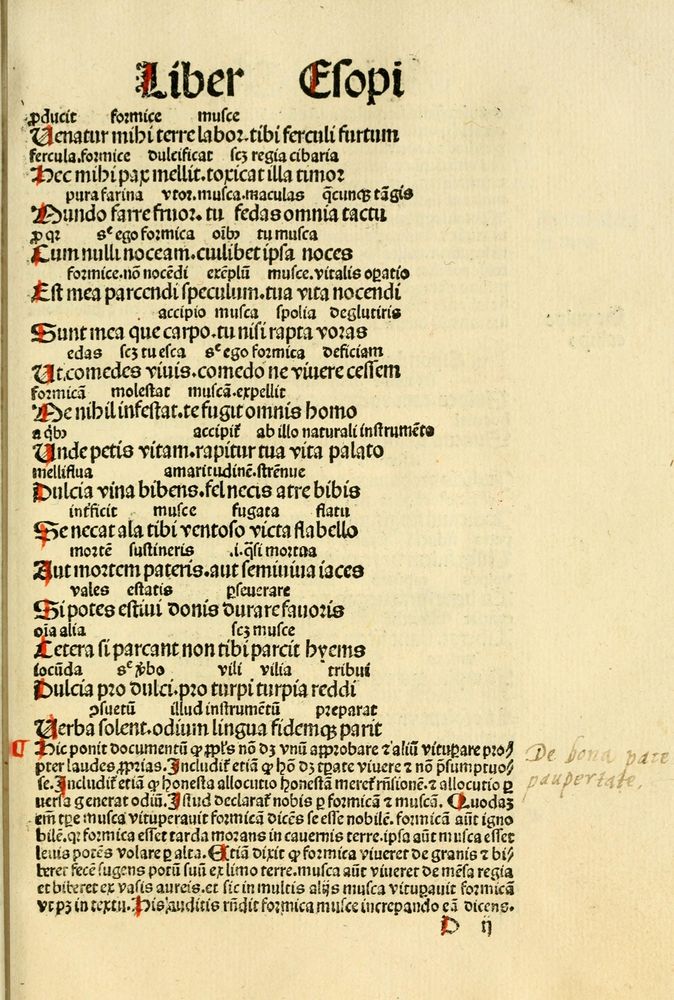 Liber Esopi
ꝓducit formice musce
Uenatur mihi terre labor. tibi ferculi furtum
fercula. formice dulcificat scꝫ regia cibaria
Hec mihi pax mellit. toxicat illa timor
pura farina vtor. musca. maculas q̄cunqꝫ tāgis
Mundo farre fruor. tu fedas omnia tactu
ꝓ qꝛ sᶜ ego formica oībꝰ tu musca
Cum nulli noceam. cuilibet ipsa noces
formice. nō nocēdi exēplū musce. vitalis oꝑatio
Est mea parcendi speculum. tua vita nocendi
accipio musca spolia deglutiris
Sunt mea que carpo. tu nisi rapta voras
edas scꝫ tu esca sᶜ ego formica deficiam
Ut. comedes viuis. comedo ne viuere cessem
formicā molestat muscā. expellit
Me nihil infestat. te fugit omnis homo
a qbꝰ accipit᷑ ab illo naturali instrumēto
Unde petis vitam. rapitur tua vita palato
melliflua amaritudinē. strēnue
Dulcia vina bibens. fel necis atre bibis
int᷑ficit musce fugata flatu
Se necat ala tibi ventoso victa flabello
mortē sustineris .i. qͣsi mortua
Aut mortem pateris. aut semiuiua iaces
vales estatis ꝑseuerare
Si potes estiui donis durare fauoris
oīa alia scꝫ musce
Cetera si parcant non tibi parcit hyems
iocūda sᶜ ꝟbo vili vilia tribui
Dulcia pro dulci. pro turpi turpia reddi
ꝯsuetū illud instrumētū preparat
Uerba solent. odium lingua fidemqꝫ parit
¶ Hic ponit documentū ꝙ ꝓpꝉs nō dꝫ vnū approbare ⁊ aliū vituꝑare pro⸗
pter laudes ꝓprias. Includit᷑ etiā ꝙ hō dꝫ tꝑate viuere ⁊ nō p̄sumptuo⸗
se. Includit᷑ etiā ꝙ honesta allocutio honestām meret᷑ rn̄sionē. ⁊ allocutio ꝑ
uersa generat odiū. Istud declarat᷑ nobis ꝑ formicā ⁊ muscā. Quodā
em̄ tꝑe musca vituperauit formicā dicēs se esse nobilē. formicā aūt igno
bilē. qꝛ formica esset tarda morans in cauernis terre. ipsa aūt musca esset
leuis potēs volare ꝑ alta. Etiā dixit ꝙ formica viueret de granis ⁊ bi⸗
beret fecē sugens potū suū ex limo terre. musca aūt viueret de mēsa regia
et biberet ex vasis aureis. et sic in multis alijs musca vituꝑauit formicā
vt pꝫ in textu. His auditis rn̄dit formica musce increpando eā dicens.
D ij
De bona pace
paupertate.